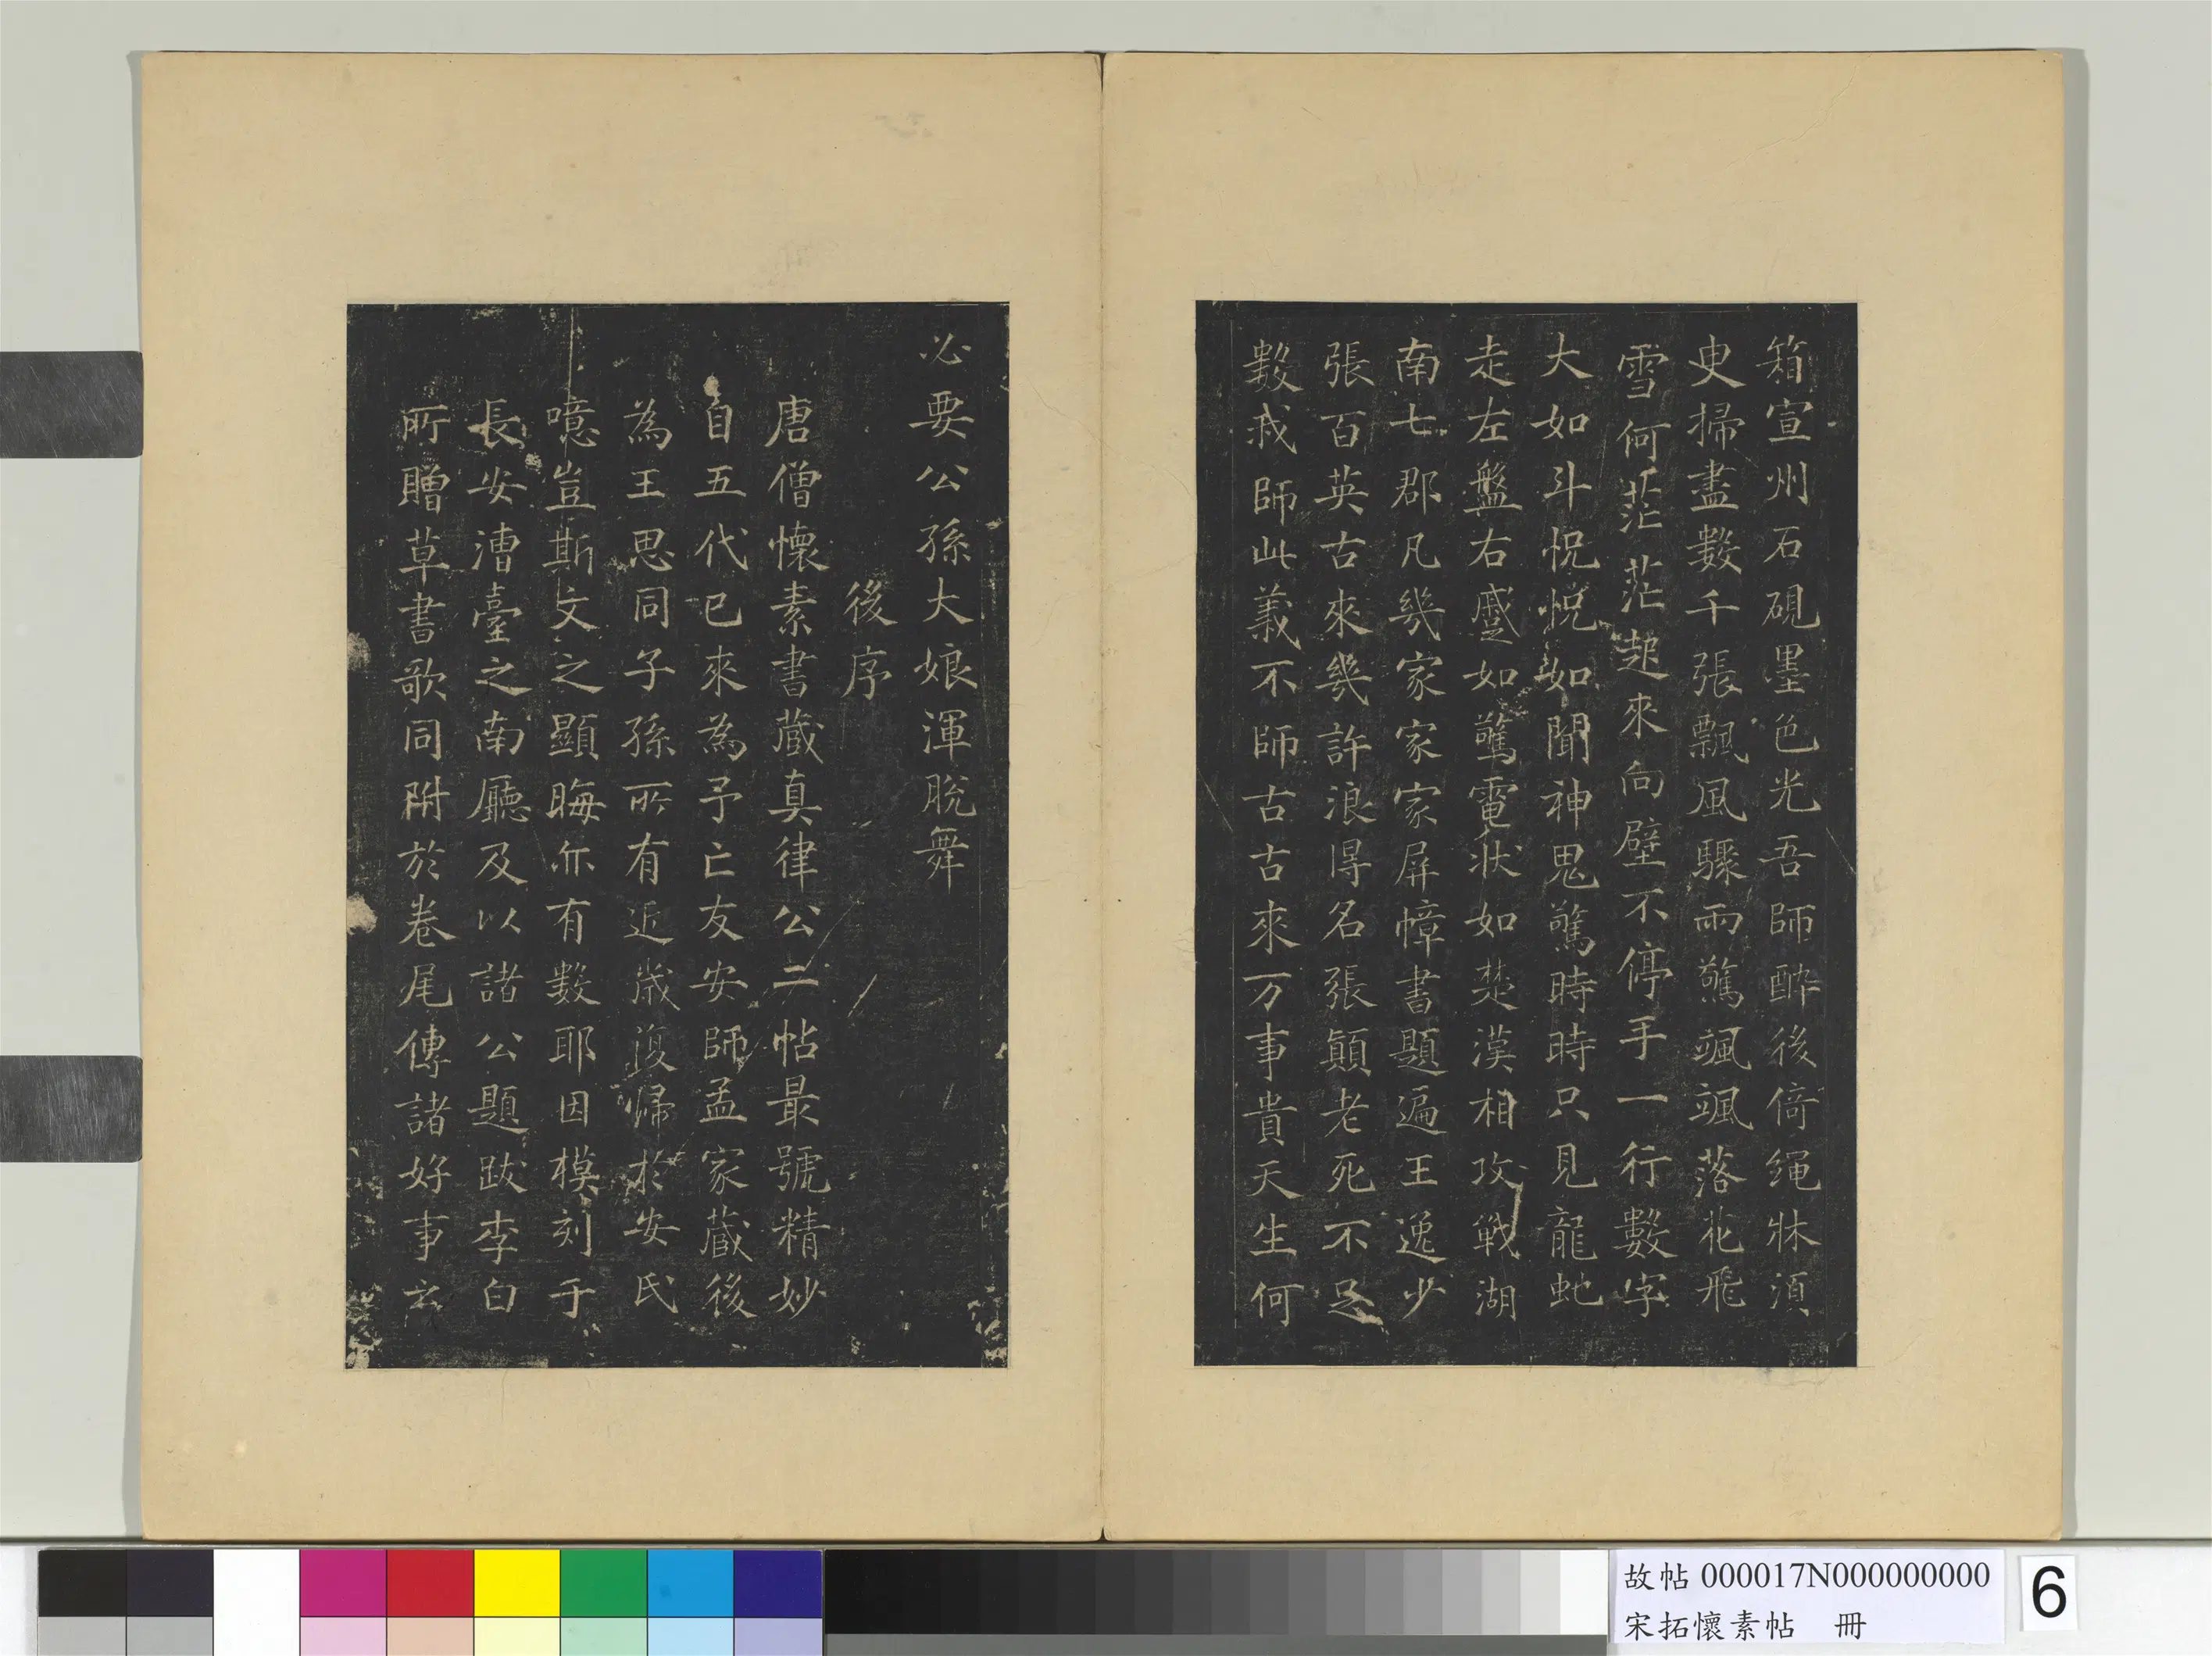 箱宣州石硯墨色光吾師醉後倚繩牀須
臾掃盡數千張飄風驟雨驚颯颯落花飛
雪何茫茫起來向壁不停手一行數字
大如斗怳怳如聞神鬼驚時時只見龍虵
走左盤右蹙如驚電狀如楚漢相攻戰湖
南七郡凡幾家家家屏幛書題遍王逸少
張百英古來幾許浪得名張顛老死不足
數我師此義不師古古來万事貴天生何
必要公孫大娘渾脫舞
後序
唐僧懷素書藏真律公二帖最號精妙
自五代已來為予亡友安師孟家藏後
為王思同子孫所有近歲復歸於安氏
噫豈斯文之顯晦尒有數耶因模刻于
長安漕臺之南廳及以諸公題跋李白
所贈草書歌同附於卷尾傳諸好事云
故帖 000017N000000000
宋拓懷素帖 冊
6